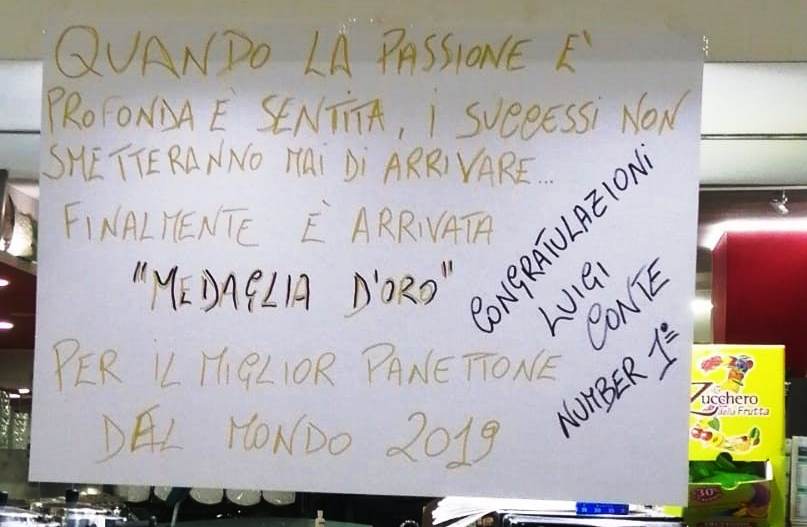 QUANDO LA PASSIONE E'
PROFONDA E' SENTITA, I SUCCESSI NON
SMETTERANNO MAI DI ARRIVARE...
FINALMENTE E' ARRIVATA
"MEDAGLIA D'ORO"
PER IL MIGLIOR PANETTONE
DAL MONDO 2019
CONGRATULAZIONI
LUIGI
CONTE
NUMBER 1º
Zucchero
della Frutta
30